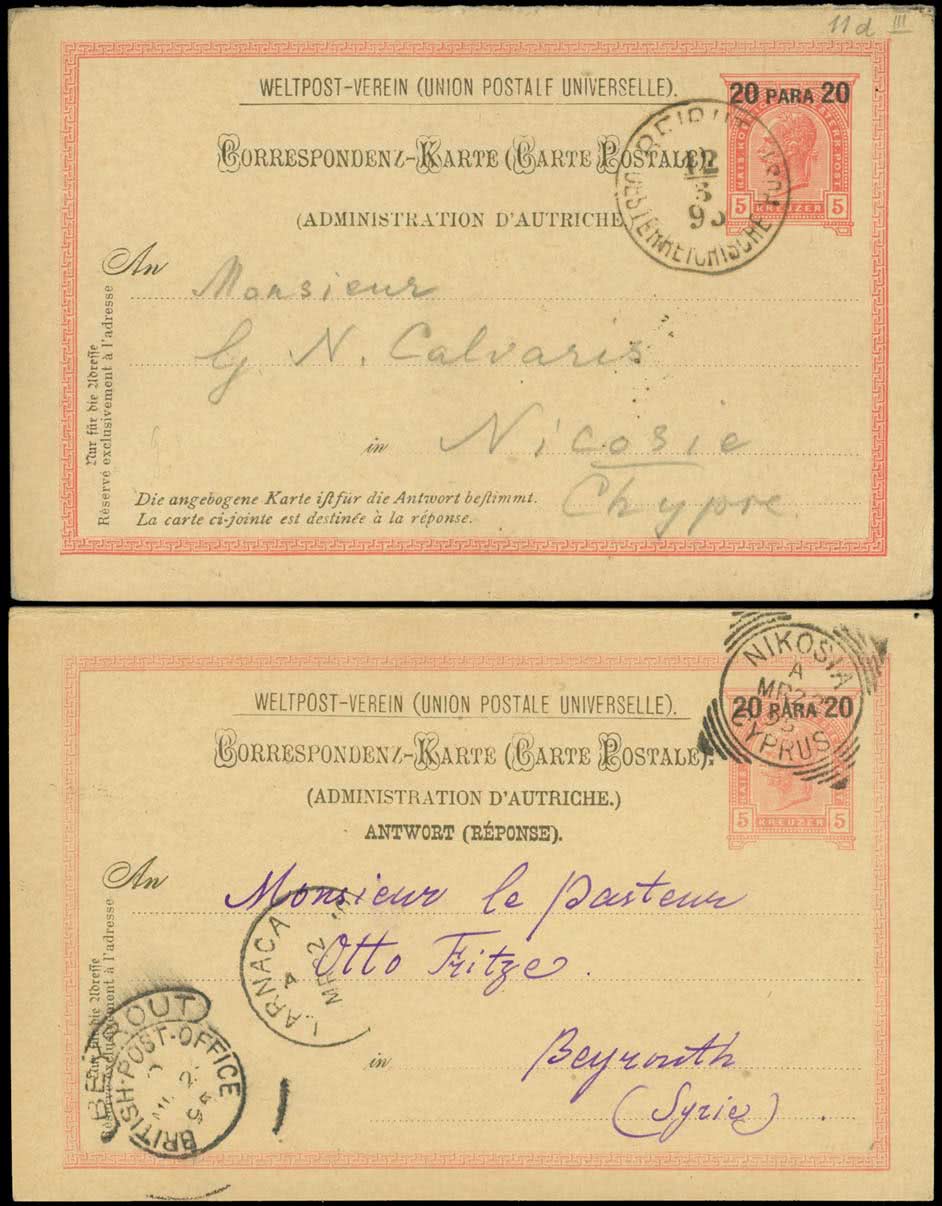 11d III
WELTPOST-VEREIN (UNION POSTALE UNIVERSELLE).
20 PARA 20
CORRESPONDENZ-KARTE (CARTE POSTALE).
5 KREUZER 5
(ADMINISTRATION D'AUTRICHE
BEIRUT
12
OESTERREICHISCHE POST
An
Monsieur
G. N. Calvaris
in Nicosie
Chypre
Nur für die Adresse
Réservé exclusivement à l'adresse
Die angebogene Karte ist für die Antwort bestimmt.
La carte ci-jointe est destinée à la réponse.
NIKOSIA
A
CYPRUS
WELTPOST-VEREIN (UNION POSTALE UNIVERSELLE).
20 PARA 20
CORRESPONDENZ-KARTE (CARTE POSTALE).
(ADMINISTRATION D'AUTRICHE.)
5 KREUZER 5
ANTWORT (RÉPONSE).
An
Monsieur le Pasteur
Otto Fritze.
in Beyrouth
(Syrie)
LARNACA
A
Nur für die Adresse
Réservé exclusivement à l'adresse
BEYROUT
BRITISH-POST-OFFICE